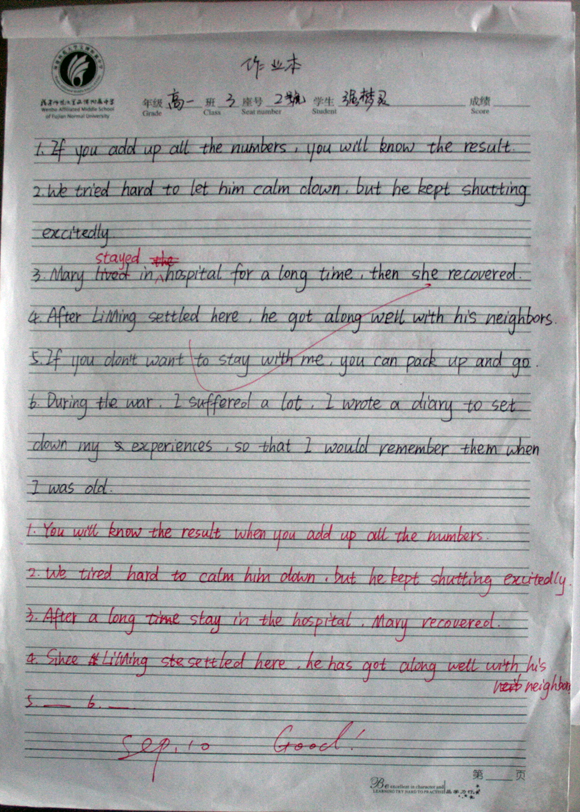 作业本
Wenbo Affiliated Middle School
of Fujian Normal University
年级 高一 班 3 座号 2號 学生 成绩
Grade Class Seat number Student Score
1. If you add up all the numbers, you will know the result.
2. We tried hard to let him calm down, but he kept shutting
excitedly
stayed the
3. Mary lived in hospital for a long time, then she recovered.
4. After LiMing settled here, he got along well with his neighbors.
5. If you don't want to stay with me, you can pack up and go.
6. During the war, I suffered a lot, I wrote a diary to set
down my experiences, so that I would remember them when
I was old.
1. You will know the result when you add up all the numbers.
2. We tired hard to calm him down, but he kept shutting excitedly.
3. After a long time stay in the hospital, Mary recovered.
4. Since LiMing settled here, he has got along well with his
neighbor
5. 6.
Sep. 10 Good!
第 页
Be excellent in character and